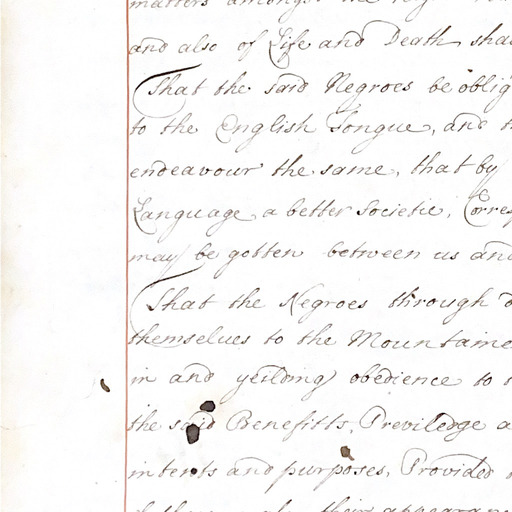 matters amongst the
and also of Life and Death shal
That the said Negroes be oblig
to the English Tongue, and t
endeavour the same, that by
Language a better Societie, Corres
may be gotten between us and
That the Negroes through o
themselues to the Mountaine
in and yeilding obedience to t
the said Benefitts, Previledge a
intents and purposes, Provided
their appearan